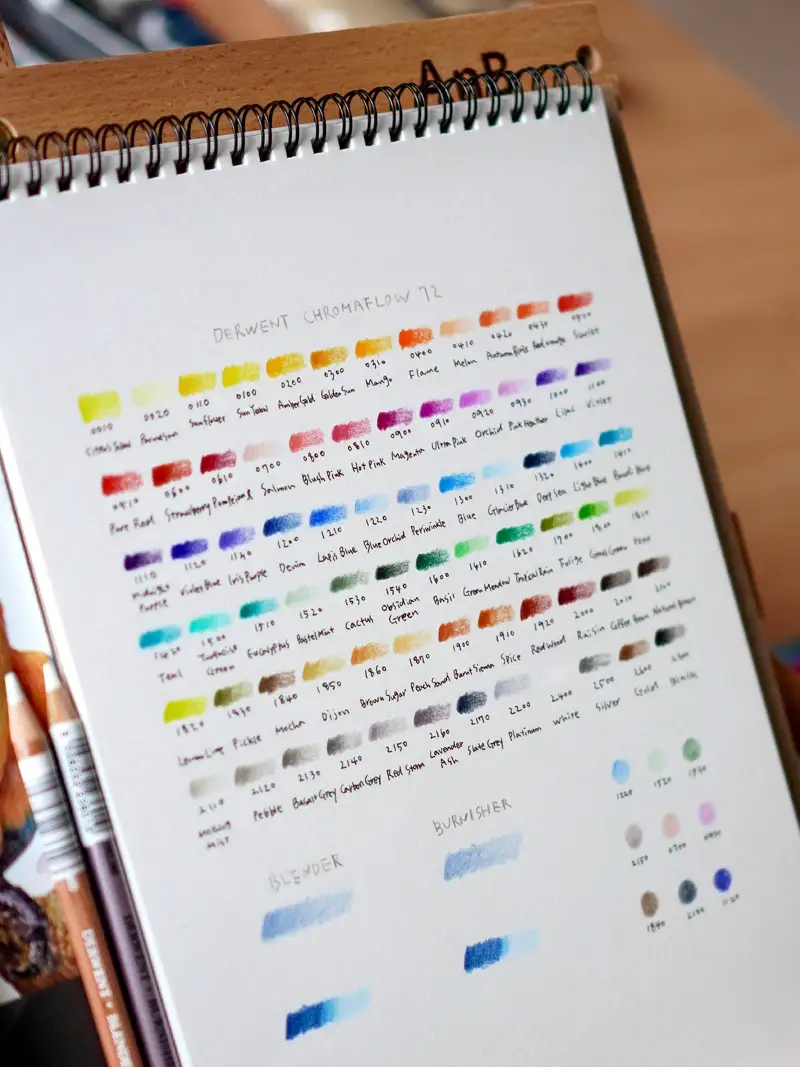 AnB
DERWENT CHROMAFLOW 72
0010 0020 0110 0100 0200 0300 0310 0400 0410 0420 0430 0500
Citrus Yellow Parmesan Sunflower Sun Yellow Amber Gold Golden Sun Mango Flame Melon Red Orange Scarlet
0510 0600 0610 0700 0800 0810 0900 0910 0920 0930 1000 1100
Pure Red Strawberry Salmon Blush Pink Hot Pink Magenta Ultra Pink Orchid Pink Heather Lilac Violet
1110 1120 1130 1200 1210 1220 1230 1300 1310 1320 1400 1410
Midnight Purple Violet Blue Iris Purple Denim Lapis Blue Blue Orchid Periwinkle Blue Glacier Blue Deep Sea Light Blue Blue
1420 1500 1510 1520 1530 1540 1600 1610 1620 1700 1800 1810
Teal Turquoise Green Eucalyptus Pastel Mint Cactus Obsidian Green Basil Green Meadow Tropical Rain Grass Green Pear
1820 1830 1840 1850 1860 1870 1900 1910 1920 2000 2010 2100
Lemon Lime Pickle Mocha Dijon Brown Sugar Peach Sand Burnt Sienna Spice Redwood Raisin Coffee Bean Natural Brown
2110 2120 2130 2140 2150 2160 2170 2200 2400 2500 2600
Mist Pebble Basalt Grey Carbon Grey Red Storm Lavender Ash Slate Grey Platinum White Silver Gold Black
BLENDER
BURNISHER
1220 1520 1530
2150 0700 0930
1840 1120
DERWENT
DERWENT • BLEND